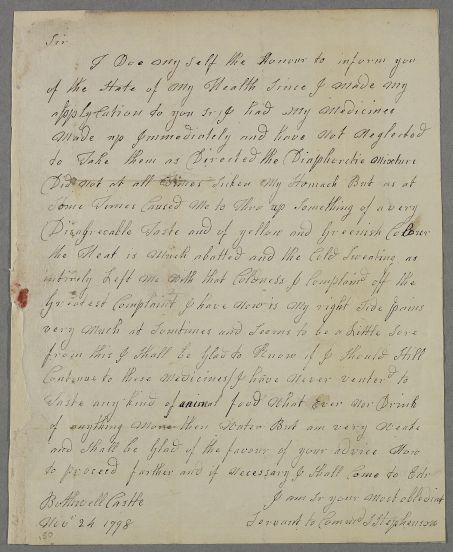 Sir
I Doe my self the Honour to inform you
of the State of my Health Since I made my
applycation to you Sr I had my Medicines
Made up Immediately and have Not Neglected
to Take them as Directed the Diaphoretic Mixture
Did Not at all Times Sicken My Stomack But as at
Some Times Caused Me to Thro up Something of a very
Disagreeable Taste and of yellow and greenish Colour
the Heat is Much abatted and the Cold Sweating as
intirely Left me with that Coldness I Complaind off the
Greatest Complaint I have Now is My right Side pains
very Much at Somtimes and Seems to be a Little Sore
from this I Shall be Glad to Know if I Should Still
Contenue to these Medicines I have Never venterd to
Taste any kind of animal food What Ever Nor Drink
of anything More then Water But am very Weake
and Shall be Glad of the favour of your advice How
to proceed farther and if Necessary I Shall Come to Edr
I am Sr your Most obbedint
Bothwell Castle
Servant to Command J Stephenson
Novr 24 1798
150